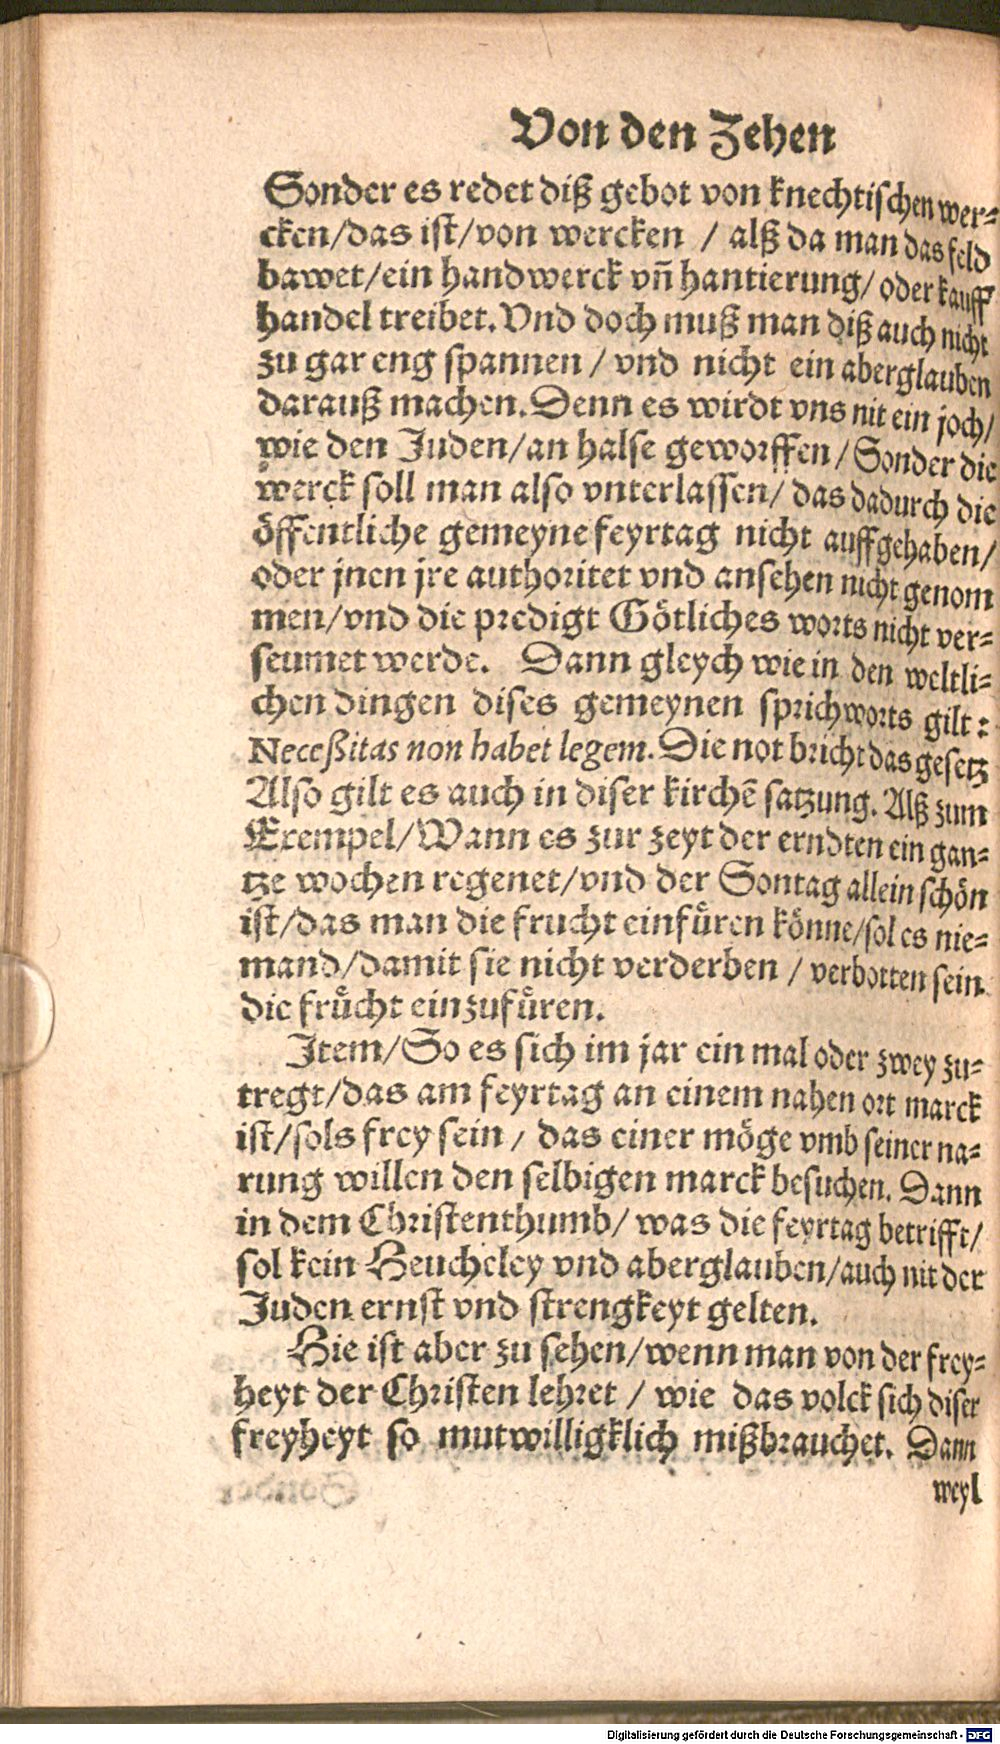 Von den Zehen
Sonder es redet diß gebot von knechtischen wer⸗
cken/das ist/von wercken / alß da man das feld
bawet/ein handwerck vñ hantierung/ oder kauff
handel treibet. Vnd doch muß man diß auch nicht
zu gar eng spannen / vnd nicht ein aberglauben
darauß machen. Denn es wirdt vns nit ein joch/
wie den Juden/an halse geworffen / Sonder die
werck soll man also vnterlassen/ das dadurch die
öffentliche gemeyne feyrtag nicht auffgehaben/
oder jnen jre authoritet vnd ansehen nicht genom
men/vnd die predigt Götliches worts nicht ver⸗
seumet werde. Dann gleych wie in den weltli⸗
chen dingen dises gemeynen sprichworts gilt:
Neceßitas non habet legem. Die not bricht das gesetz
Also gilt es auch in diser kirchē satzung. Alß zum
Exempel/Wann es zur zeyt der erndten ein gan⸗
tze wochen regenet/vnd der Sontag allein schön
ist/das man die frucht einfüren könne/sol es nie⸗
mand/damit sie nicht verderben / verbotten sein
die frücht einzufüren.
Item/So es sich im jar ein mal oder zwey zu⸗
tregt/das am feyrtag an einem nahen ort marck
ist/sols frey sein / das einer möge vmb seiner na⸗
rung willen den selbigen marck besuchen. Dann
in dem Christenthumb/ was die feyrtag betrifft/
sol kein Heucheley vnd aberglauben/auch nit der
Juden ernst vnd strengkeyt gelten.
Hie ist aber zu sehen/wenn man von der frey⸗
heyt der Christen lehret / wie das volck sich diser
freyheyt so mutwilligklich mißbrauchet. Dann
weyl
Digitalisierung gefördert durch die Deutsche Forschungsgemeinschaft - DFG